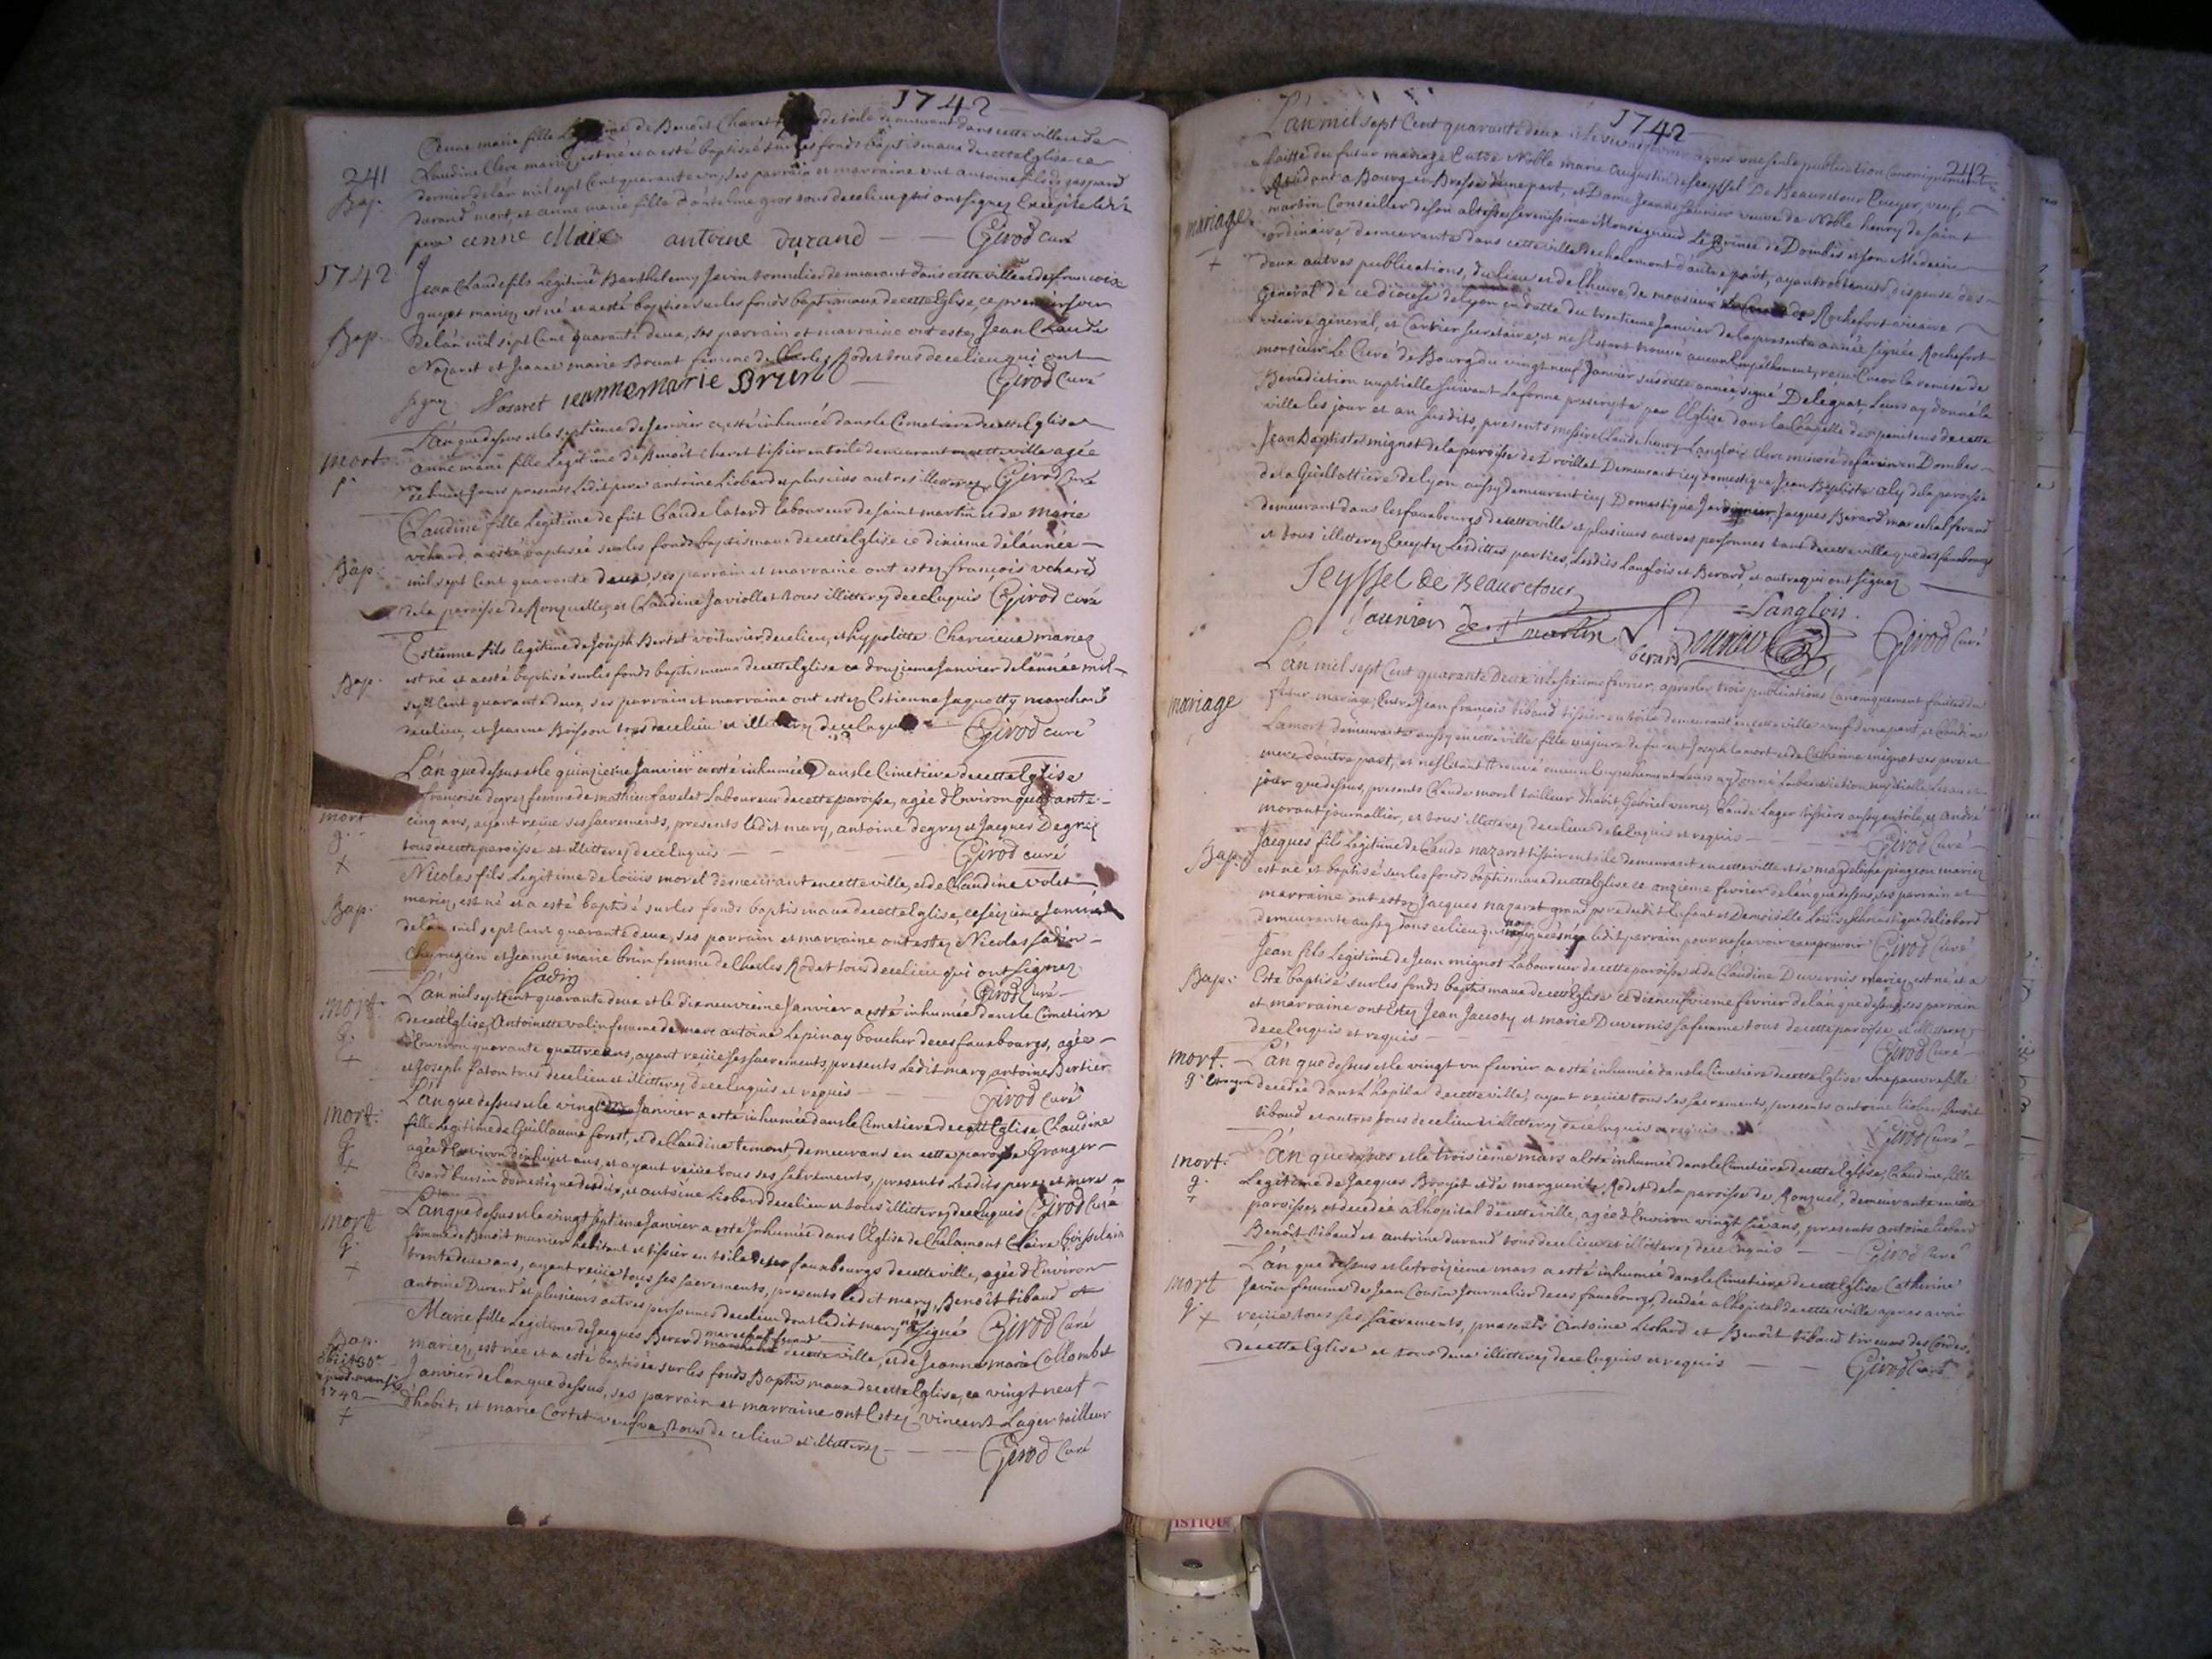 1742
241
Anne marie fille de Benoît Charet de toile demeurant dans cette ville et de
Bap.
Claudine Clerc mariez, est née et a esté baptisée sur les fonds baptismaux de cette Eglise ce
dernier de l'an mil sept Cent quarante un, ses parrain et marraine ont antoine fils de gaspard
durand mort, et anne marie fille d'antelme gros tous de ce lieu qui ont signez Excepté ledit
pere anne Marie antoine durand Girod curé
1742
Jean Claude fils Legitime Barthelemy Jevin tonnelier demeurant dans cette ville et de francoise
guyot mariez, est né et a esté baptisé sur les fonds baptismaux de cette Eglise, ce premier jour
Bap.
de l'an mil sept Cent quarante deux, ses parrain et marraine ont estez Jean Claude
Nazaret et Jeanne marie Brunt femme de Charles Rodet tous de ce lieu qui ont
signez Nazaret jeanne marie Brun Girod curé
mort
L'an que dessus et le septieme de Janvier a esté inhumée dans le Cimetiere de cette Eglise
anne marie fille Legitime de Benoît Charet tissier en toile demeurant en cette ville agée
de huit Jours presents Ledit pere antoine Liobard et plusieurs autres illiterez Girod Curé
Claudine fille Legitime de feu Claude Latard laboureur de saint martin et de marie
vchard, a esté baptisée sur les fonds baptismaux de cette Eglise ce dixieme de l'année
Bap.
mil sept Cent quarante deux, ses parrain et marraine ont estez françois vchard
de la paroisse de Ronzuelle, et Claudine Javiollet tous illitterez de ce Enquis Girod curé
Estienne fils legitime de Joseph Bertet voiturier de ce lieu, et hypolitte Charvieux mariez
Bap.
est né et a esté baptisé sur les fonds baptismaux de cette Eglise ce douzieme Janvier de l'année mil
sept Cent quarante deux, ses parrain et marraine ont estez Estienne Jaquotty marchand
de ce lieu, et Jeanne Boisson tous de ce lieu et illitterez de ce Enquis Girod curé
L'an que dessus et le quinzieme Janvier a esté inhumée Dans le Cimetiere de cette Eglise
francoise degrez femme de mathieu favelet Laboureur de cette paroisse, agée d'Environ quarante
mort
g.
+
cinq ans, ayant reçüe ses sacrements, presents ledit mary, antoine degrez et Jacques Degrez
tous de cette paroisse et illitterez de ce Enquis Girod curé
Nicolas fils Legitime de loüis morel demeurant en cette ville, et de Claudine volet
Bap.
mariez, est né et a esté baptisé sur les fonds baptismaux de cette Eglise, ce seizieme Janvier
de l'an mil sept Cent quarante deux, ses parrain et marraine ont estez Nicolas sadin
Chyrurgien et Jeanne marie brun femme de Charles Rodet tous de ce lieu qui ont signez
sadin Girod curé
mort
g.
+
L'an mil sept Cent quarante deux et le dixneuvieme Janvier a esté inhumée dans le Cimetiere
de cette Eglise, Antoinette valin femme de marc antoine Lepinay boucher de ces fauxbourgs, agée
d'Environ quarante quattre ans, ayant reçüe ses sacrements, presents Ledit mary antoine Bertier
et Joseph faton tous de ce lieu et illitterez de ce Enquis et requis Girod curé
mort
g.
+
L'an que dessus et le vingt Janvier a esté inhumée dans le Cimetiere de cette Eglise Claudine
fille Legitime de Guillaume forest, et de Claudine temont, demeurans en cette paroisse Granger
agée d'Environ dixhuit ans, et ayant reçüe tous ses sacrements, presents Lesdits pere et mere
Cesard buisson domestique desdits, et antoine Liobard de ce lieu et tous illitterez de ce Enquis Girod Curé
mort
g.
+
L'an que dessus et le vingt septieme Janvier a esté Inhumée dans l'Eglise de Chalamont Claire Goisselain
femme de Benoit munier habitant et tissier en toile de ses fauxbourgs de cette ville, agée d'Environ
trente deux ans, ayant reçüe tous ses sacrements, presents Ledit mary, Benoît tibaud et
antoine Durand et plusieurs autres personnes de ce lieu dont Ledit mary a signé Girod Curé
Marie fille Legitime de Jacques Berard marechal ferand de cette ville, et de Jeanne marie Collombet
Bap.
obiit 30a
1742
+
mariez, est née et a esté baptisée sur les fonds Baptismaux de cette Eglise, ce vingt neuf
Janvier de l'an que dessus, ses parrain et marraine ont Estez vincent Lager tailleur
d'habit, et marie Cortet veufve, tous de ce lieu et illitterez Girod Curé
1742
242
L'an mil sept Cent quarante deux et le fevrier apres une seule publication Canoniquement
faitte du futur mariage Entre Noble marie augustin de seyssel De Beauretour Ecuyer, veuf,
residant a Bourg en Bresse d'une part, et Dame Jeanne saunier veuve de Noble henry de saint
mariage
+
martin Conseiller de son altesse serenissime Monseigneur Le Prince de Dombes et son Medecin
ordinaire, demeurante dans cette ville de chalamont d'autre part, ayants obtenus dispense des
deux autres publications, du lieu et de l'heure, de monsieur de Rochefort vicaire
General de ce diocese de lyon en datte du trentieme Janvier de la presente année signée Rochefort
vicaire general, et Cartier secretaire, et ne s'estant trouvé aucun Empêchement, veu Encor la remise de
monsieur Le Curé de Bourg du vingt neuf Janvier susditte année, signé Deleguat, Leurs ay donné la
Benediction nuptialle suivant La forme prescripte par l'Eglise dans la Chapelle des penitens de cette
ville les jour et an susdits, presents messire Claude henry Langlois Clerc minoré de en Dombes
Jean Baptiste mignot de la paroisse de Drvillat Demeurant icy domestique, Jean Baptiste aly de la paroisse
de la Guillottiere de lyon aussy demeurent icy Domestique Jardinier, Jacques Berard marechal ferand
demeurant dans les fauxbourgs de cette ville et plusieurs autres personnes tant de cette ville que des fauxbourgs
et tous illitterez Exceptez Lesdittes parties, Lesdits Langlois et Berard, et autre qui ont signez
Seyssel de Beauretour
Saunier de St martin Langlois
berard Girod Curé
L'an mil sept Cent quarante Deux et le sixieme fevrier, apres les trois publications Canoniquement faittes du
mariage
futur mariage, Entre Jean françois tibaud tissier en toile demeurant en cette ville veuf d'une part, et Claudine
Lamort demeurante aussy en cette ville fille majeure de furent Joseph Lamort et de Catherine mignot ses pere et
mere d'autre part, et ne s'estant trouvé aucun Empechement Leurs ay donné La benediction nuptialle Les an et
jour que dessus, presents Claude morel tailleur d'habit Gabriel Claude Lager tissiers aussy en toile, et andré
morant journallier, et tous illitterez de ce lieu de ce Enquis et requis Girod Curé
Bap.
Jacques fils Legitime de Claude nazaret tissier en toile demeurant en cette ville et de magdeleine pingeon mariez
est né et baptisé sur les fonds baptismaux de cette Eglise ce onzieme fevrier de l'an que dessus, ses parrain et
marraine ont estez Jacques nazaret grand pere dudit Enfant et Demoiselle Loüise scholastique de liobard
demeurante aussy dans ce lieu qui non ledit parrain pour ne scavoir Girod Curé
Jean fils Legitime de Jean mignot Laboureur de cette paroisse et de Claudine Duvernis mariez, est né, et a
Bap.
Esté baptisé sur les fonds baptismaux de cette Eglise ce dixneufvieme fevrier de l'an que dessus, ses parrain
et marraine ont Estez Jean Jacoty et marie Duvernis sa femme tous de cette paroisse et illitterez
de ce Enquis et requis Girod Curé
mort
g.
L'an que dessus et le vingt un fevrier a esté inhumée dans le Cimetiere de cette Eglise une pauvre fille
decedée dans L'hopital de cette ville, ayant reçüe tous ses sacrements, presents antoine liobard Benoit
tibaud et autres tous de ce lieu et illitterez de ce Enquis et requis Girod Curé
mort
g.
+
L'an que dessus et le troisieme mars a esté inhumée dans le Cimetiere de cette Eglise, Claudine, fille
Legitime de Jacques Broyet et de marguerite Rodet de la paroisse de Ronzuel, demeurante en cette
paroisse, et decedée a l'hopital de cette ville, agée d'Environ vingt six ans, presents antoine liobard
Benoît tibaud et antoine durand tous de ce lieu et illitterez de ce Enquis Girod Curé
L'an que dessus et le troizieme mars a esté inhumée dans le Cimetiere de cette Eglise Catherine
mort
g. +
Jevin femme de Jean Cousin Journalier de ces fauxbourgs, decedée a l'hopital de cette ville apres avoir
reçüe tous ses sacrements, presents antoine Liobard et Benoît tibaud tireurs des Cordes
de cette Eglise et tous deux illitterez de ce Enquis et requis Girod Curé
ISTIQU